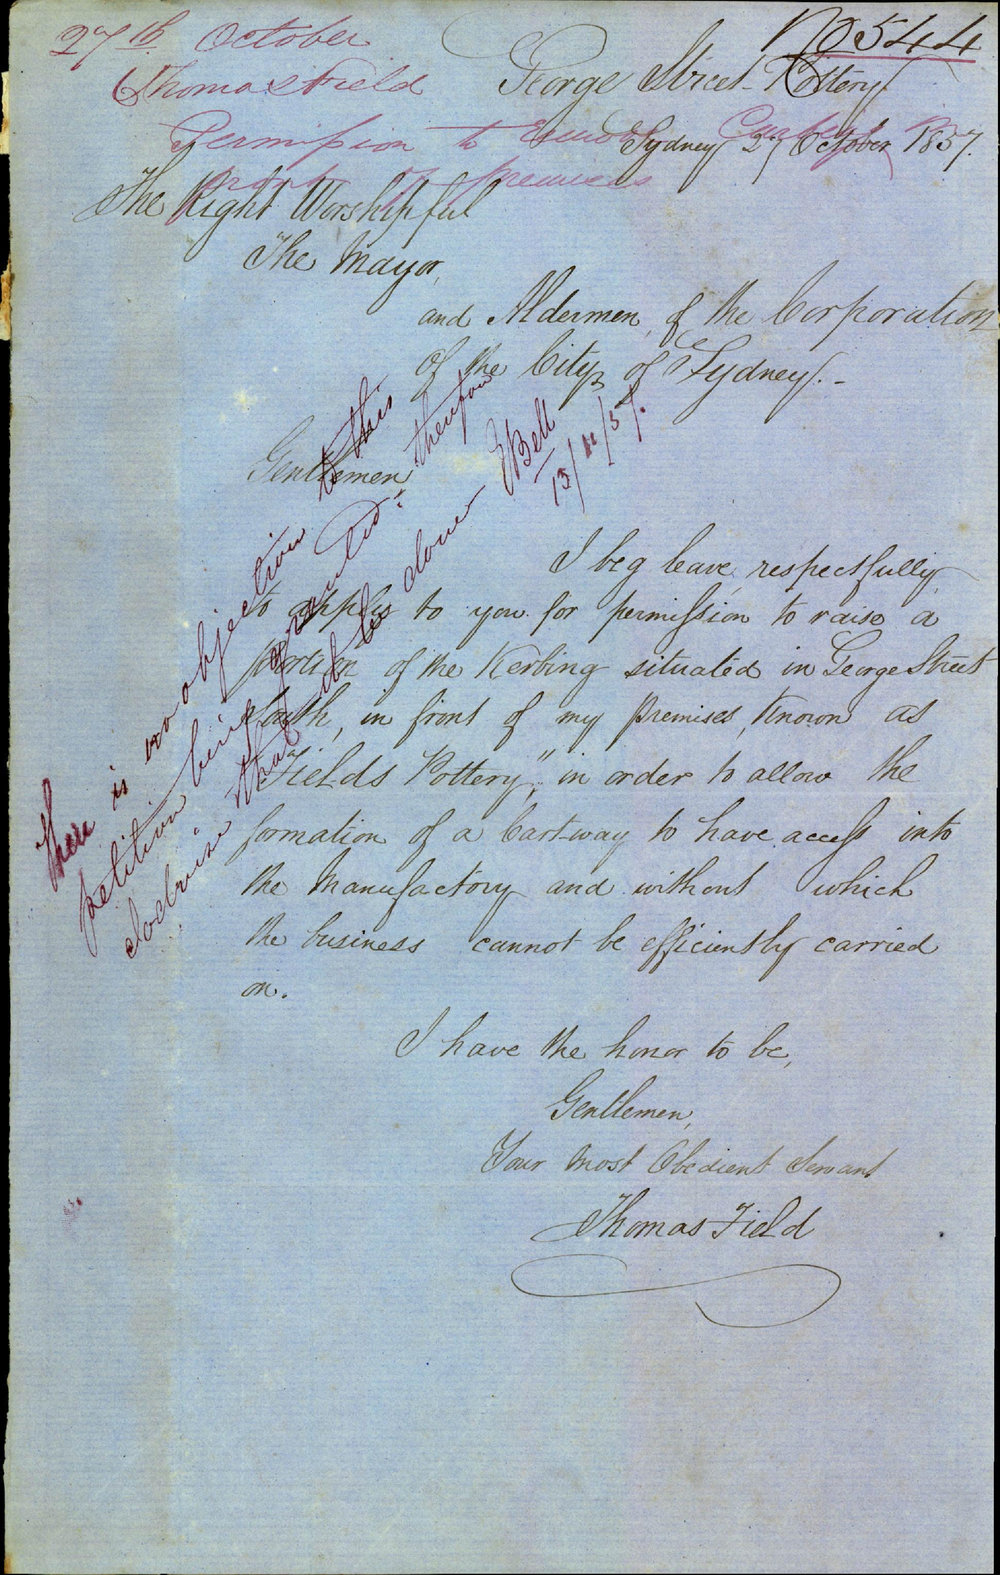 No 544
27th October
Thomas Field
Permission to Curbing in
front of premises
George Street Pottery
Sydney 27 October 1857.
The Right Worshipful
The Mayor,
and Aldermen, of the Corporation
of the City, of Sydney.-
Gentlemen
I beg leave respectfully
to apply to you for permission to raise a
portion of the Kerbing situated in George Street
South, in front of my premises, known as
"Fields Pottery", in order to allow the
formation of a Cart-way to have access into
the Manufactory and without which
the business cannot be efficiently carried
on.
I have the honor to be,
Gentlemen,
Your most Obedient Servant
Thomas Field
There is no objection to this
petition being granted. therefore
I advise that it be done
EBell
13/11/57.